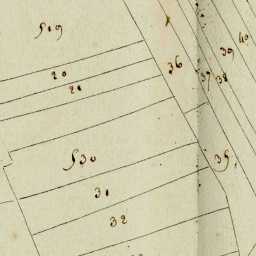 519
40
39
20
36
37
38
21
530
35
31
32